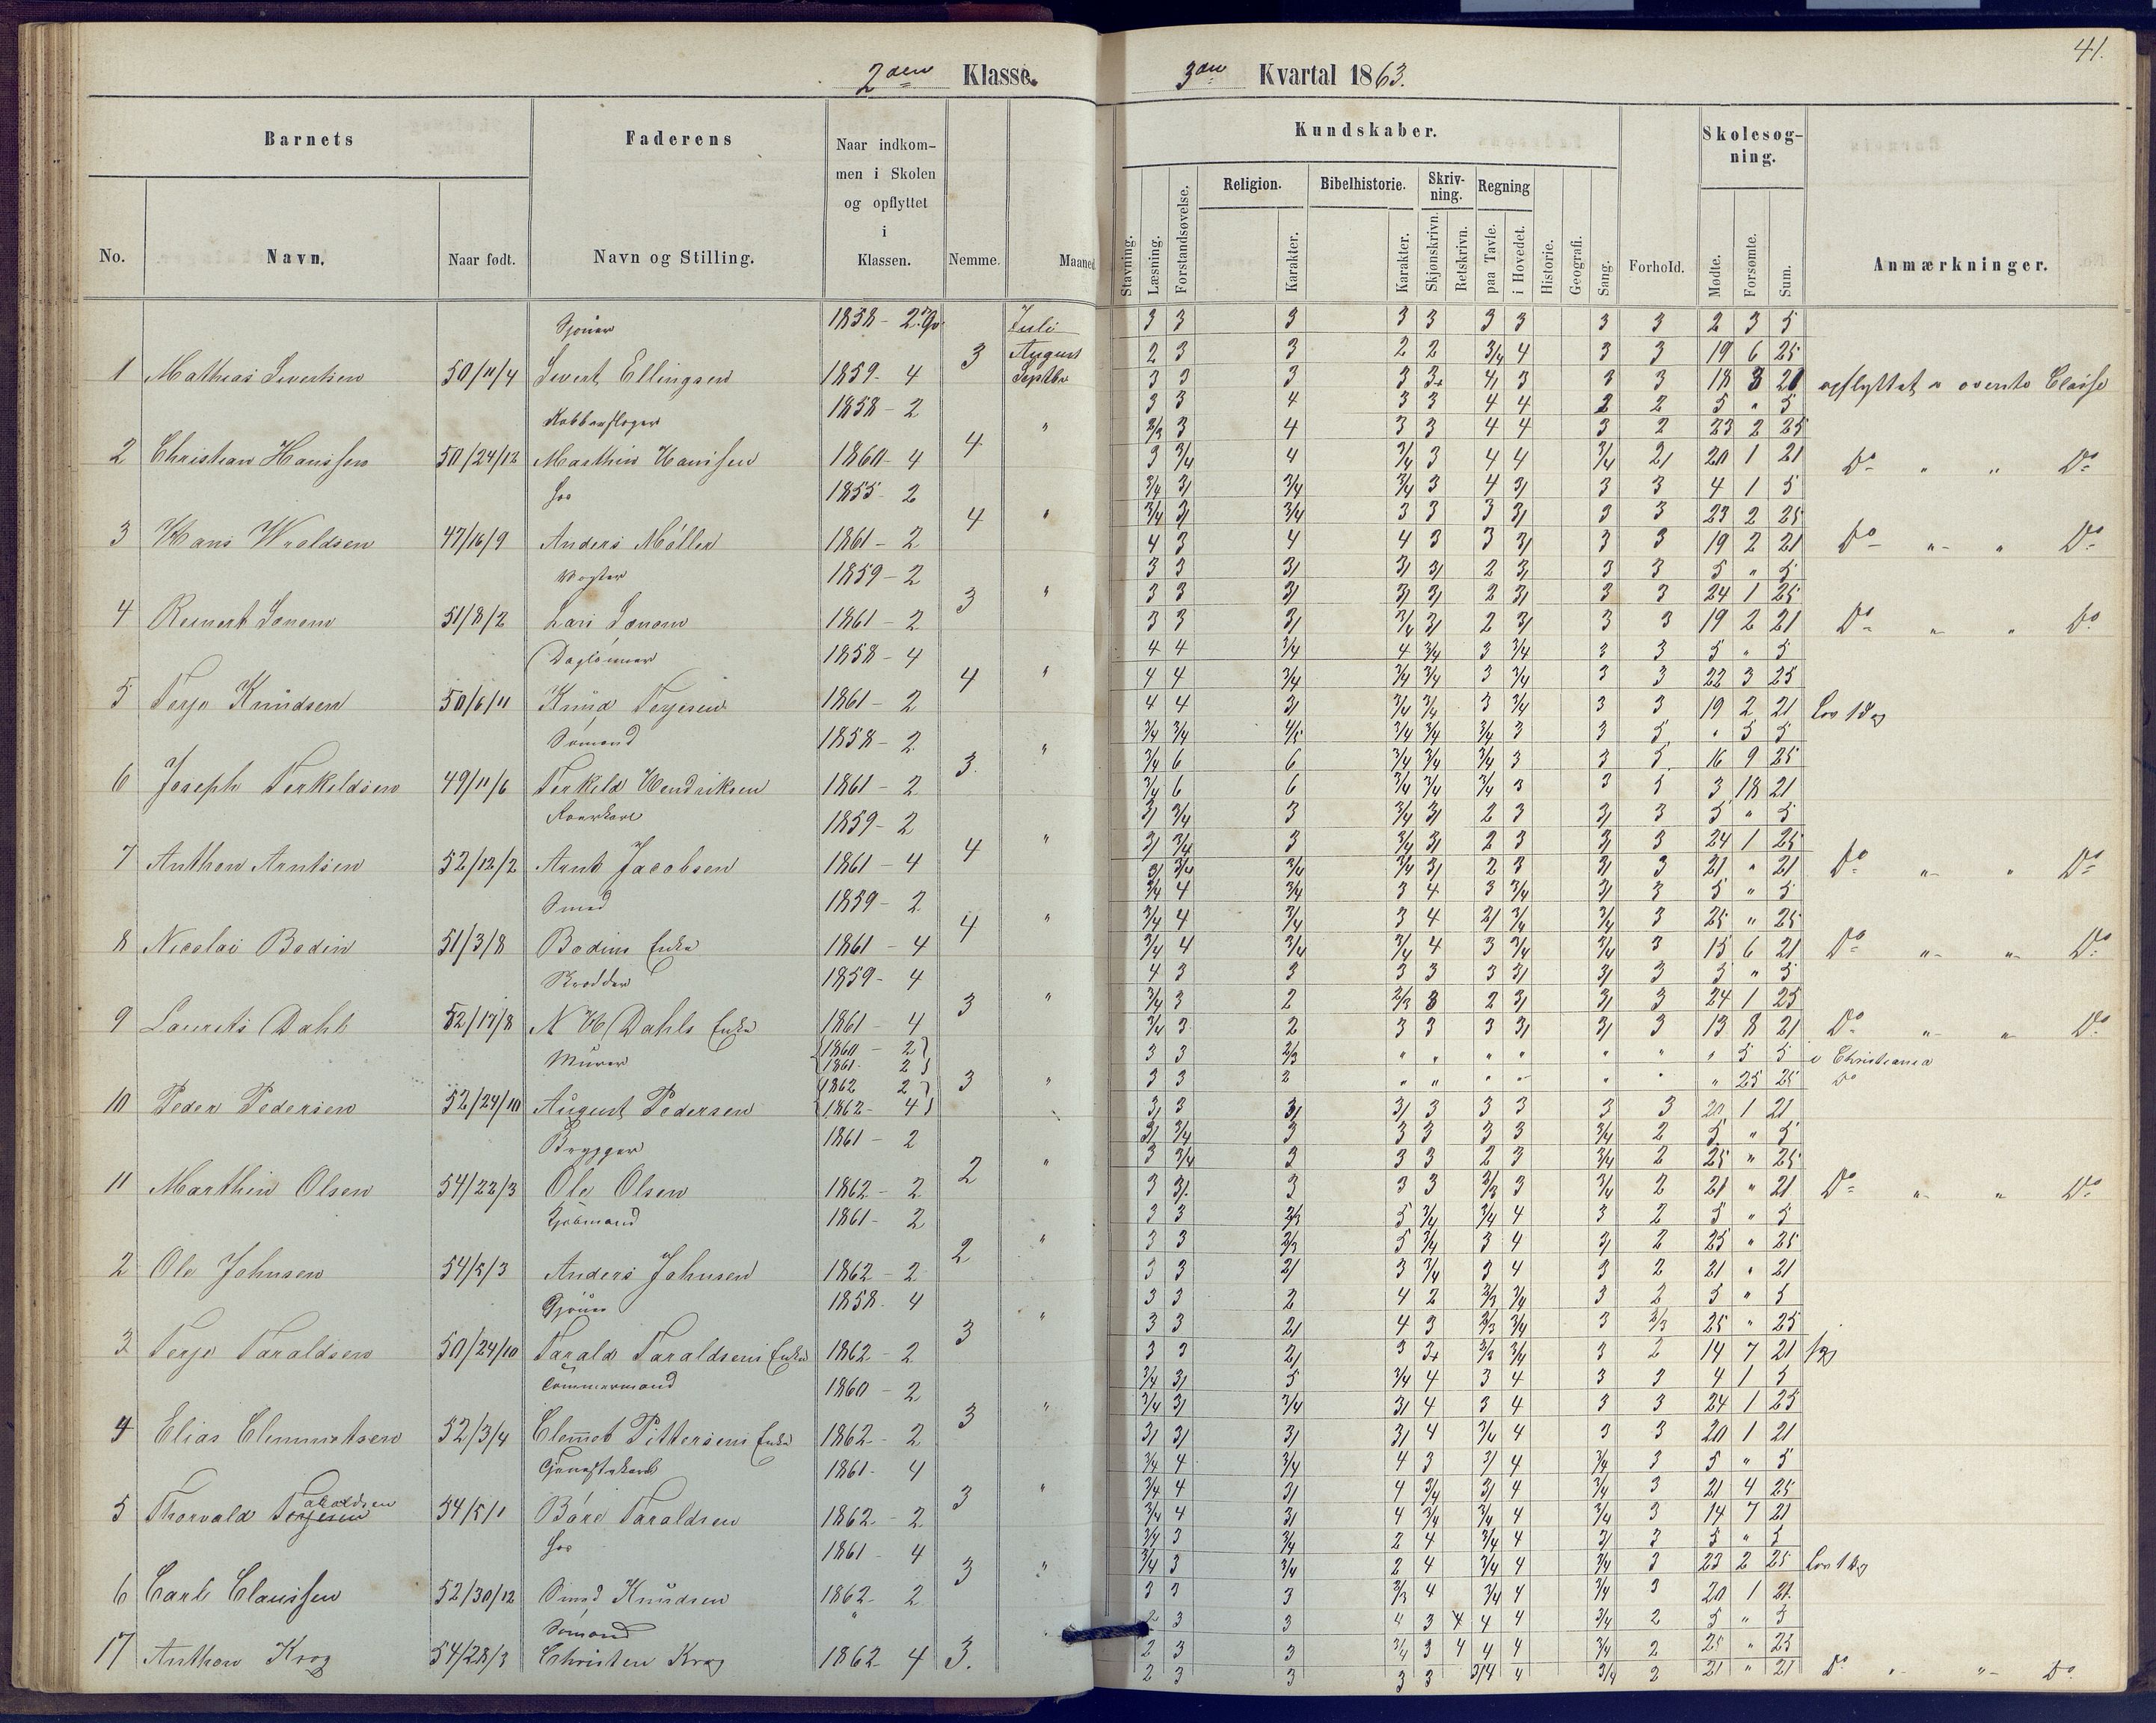 41.
2den Klasse. 3die Kvartal 1863.
Barnets Faderens Naar indkom- men i Skolen og opflyttet i Klassen. Nemme. Maaned
No. Navn. Naar født. Navn og Stilling.
Kundskaber. Forhold. Skolesøg- ning. Anmærkninger.
Stavning. Læsning. Forstandsøvelse. Religion. Karakter. Bibelhistorie. Karakter. Skriv- ning. Skjønskrivn. Retskrivn. Regning paa Tavle. i Hovedet. Historie. Geografi. Sang. Mødte. Forsømte. Sum.
1858 - 2 Juli 3 3 3 3 3 3 3 3 3 2 3 5
August 2 3 3 2 2 3/4 4 3 3 19 6 25
1 Mathias Sivertsen 50/11/4 Sivert Ellingsen 1859 - 4 3 Septbr 3 3 3 3 3 4 3 3 3 18 3 21 opflyttet i øverste Classe
1858 - 2 3 3 4 3 3 4 4 2 2 5 " 5
" 2/3 3 4 3 3 4 4 3 2 23 2 25
2 Christian Hanssen 50/24/12 Marthin Hanssen 1860 - 4 4 3 3/4 4 3/4 3 4 4 3/4 2/ 20 1 21 Do " " Do
1855 - 2 3/4 3/ 3/4 3/4 3 4 3/ 3 3 4 1 5
" 3/4 3/ 3/4 3 3 3 3/ 3 3 23 2 25
3 Hans Wroldsen 47/16/9 Anders Möller 1861 - 2 4 4 3 4 4 3 3 3/ 3 3 19 2 21 Do " " Do
1859 - 2 3 3 3/ 3/ 3/ 2 3/ 3 3 5 " 5
" 3 3 3/ 3/ 3/ 2 3/ 3 3 24 1 25
4 Reinert 51/8/2 Lars 1861 - 2 3 3 3 3/ 3/4 3/ 2 3/ 3 3 19 2 21 Do " " Do
Daglönner 1858 - 4 4 4 3/4 4 3/4 3 3/4 3 3 5 " 5
" 4 4 3/4 3/4 3/4 3 3/4 3 3 22 3 25
5 Terje Knudsen 50/6/11 Knud Terjesen 1861 - 2 4 4 4 3/ 3/4 3/4 3 3/4 3 3 19 2 21 Lov 1 Dag
Sömand 1858 - 2 3/4 3/4 4/5 3/4 3/4 3/4 3 3 5 " 5 5
" 3/4 6 6 3/4 3/4 3/4 3 3 5 16 9 25
6 Joseph Terkeldsen 49/11/6 Terkeld Hendriksen 1861 - 2 3 3/4 6 6 3/4 3/4 3/4 3 3 5 3 18 21
1859 - 2 3/ 3/4 3 3/4 3/ 2 3 3/ 3 5 " 5
" 3/ 3/4 3 3/4 3/ 2 3 3/ 3 24 1 25
7 Anthon Arntsen 52/12/2 Arnt Jacobsen 1861 - 4 4 3/ 3/4 3/4 3/4 3/ 2 3 3/ 3 21 " 21 Do " " Do
Smed 1859 - 2 3/4 4 3/4 3 4 3 3/4 3/ 3 5 " 5
" 3/4 4 3/4 3 4 2/ 3/4 3/4 3 25 " 25
8 Nicolai Bodin 51/3/8 Bodins Enke 1861 - 4 4 3/4 4 3/4 3/4 4 3 3/4 3/4 3 15 6 21 Do " " Do
1859 - 4 4 3 3 3 3 3 3/ 3/ 3 5 " 5
" 3/4 3 2 2/3 3 2 3/ 3/ 3 24 1 25
9 Laurits Dahl 52/17/8 N H Dahls Enke 1861 - 4 3 3/4 3 2 3 3 3 3/ 3/ 3 13 8 21 Do " " Do
Murer 1860 - 2 1861 2 3 3 2/3 " " " " " " " 5 5 i Christiania
1862 2 " 3 3 2 " " " " " " " 25 25 Do
10 Peder Pedersen 52/24/10 August Pedersen 1862 - 4 3 3/ 3 3/ 3/ 3 3 3 3 3 20 1 21
Brygger 1861 - 2 3/ 3/4 3 3 3 3 3 3/4 2 5 " 5
" 3 3/4 3 3 3 2 3 3/4 2 25 " 25
11 Marthin Olsen 54/22/3 Ole Olsen 1862 - 2 2 3 3/ 3 3 3 2/3 3 3/4 2 21 " 21 Do " " Do
Kjöbmand 1861 - 2 3 3 2/3 5 3/4 3/4 4 3 2 5 " 5
" 3 3 2/3 5 3/4 3 4 3/ 2 25 " 25
2 Ole Johnsen 54/5/3 Anders Johnsen 1862 - 2 2 3 3 2/ 3 3/4 3 4 3 2 21 " 21
1858 - 4 3 3 2 4 2 2/3 3/4 3 2 5 " 5
" 3 3 2/ 4 3 2/3 3/4 3 2/3 25 " 25
3 Terje Taraldsen 50/24/10 Tarald Taraldsens Enke 1862 - 2 3 3 3 2/ 3 3 2/3 3/4 3 2 14 7 21 syg
Tömmermand 1860 - 2 3/4 3/ 5 3/4 4 3 4 3 3 4 1 5
" 3/4 3/ 3/4 3/ 4 3 4 3 3 24 1 25
4 Elias Clemmetsen 52/3/4 Clemet Pittersens Enke 1862 - 2 3 3/ 3/ 3/ 3/ 4 3/4 4 3 3 20 1 21
1861 - 4 3/4 4 3/4 4 3 3/ 4 3/4 3 5 " 5
" 3/4 4 3/ 4 3/4 3/ 4 3/4 3 21 4 25
5 Thorvald Terjesen Taraldsen 54/5/1 Båre Taraldsen 1862 - 2 3 3/4 4 3/ 4 3/4 3/4 4 3/4 3 14 7 21
1861 - 4 3/4 3 3/4 2 4 3/4 4 3/ 3 5 " 5
" 3/4 3 3/4 2 4 3/4 4 3/4 3 23 2 25 Lov 1 Dag
6 Carl Claussen 52/30/12 Smed Knudsen 1862 - 2 3 3 3 3 2/3 4 3/4 4 3/4 3 20 1 21
Sömand " 2 3 3 4 3 4 4 4 3/4 2 5 " 5
2 3 3 3/4 3 4 4 4 3/4 2 25 " 25
17 Anthon Krog 54/28/3 Christen Krog 1862 4 3. 2 3 3 3 3 3/4 4 3/4 2 21 " 21 Do " " Do